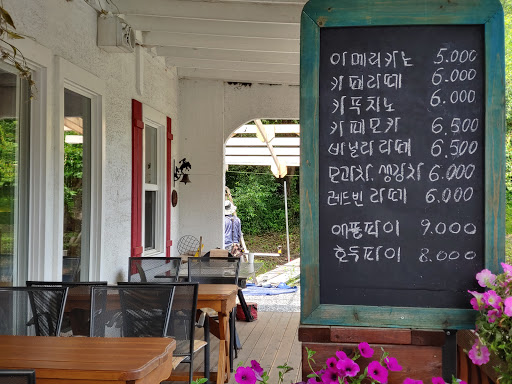 아메리카노 5.000
카페라떼 6.000
카푸치노 6.000
카페모카 6.500
바닐라 라떼 6.500
모과차. 생강차 6.000
레드빈 라떼 6.000
애플파이 9.000
호두파이 8.000